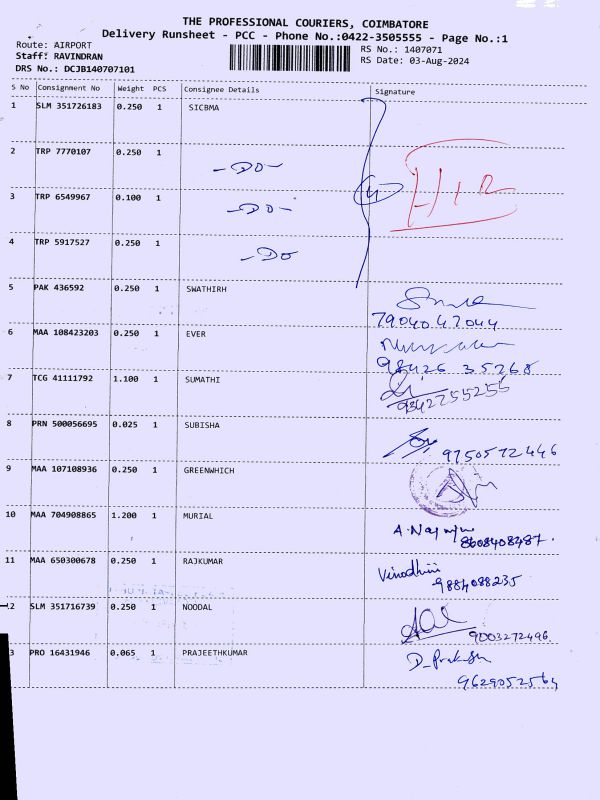 THE PROFESSIONAL COURIERS, COIMBATORE
Delivery Runsheet - PCC - Phone No.:0422-3505555 - Page No.:1
Route: AIRPORT
Staff: RAVINDRAN
DRS No.: DCJB140707101
RS No.: 1407071
RS Date: 03-Aug-2024
S No Consignment No Weight PCS Consignee Details Signature
1 SLM 351726183 0.250 1 SICBMA
2 TRP 7770107 0.250 1 -DO-
3 TRP 6549967 0.100 1 -DO-
4 TRP 5917527 0.250 1 -DO
5 PAK 436592 0.250 1 SWATHIRH
79040 47044
6 MAA 108423203 0.250 1 EVER
98426 35268
7 TCG 41111792 1.100 1 SUMATHI
9342755255
8 PRN 500056695 0.025 1 SUBISHA
9750572446
9 MAA 107108936 0.250 1 GREENWHICH
10 MAA 704908865 1.200 1 MURIAL
8608408487.
11 MAA 650300678 0.250 1 RAJKUMAR
Vinodhini
9884088235
12 SLM 351716739 0.250 1 NOODAL
9003272496.
3 PRO 16431946 0.065 1 PRAJEETHKUMAR
9629052564